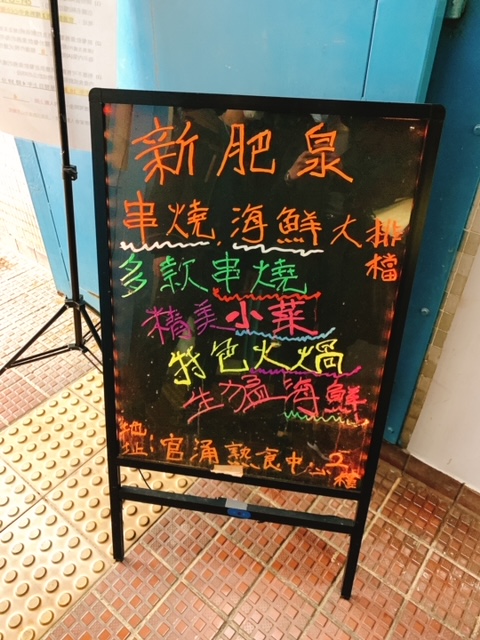 新肥泉
串燒,海鮮大排檔
多款串燒
精美小菜
特色火煱
生猛海鮮
地址:官涌熟食中心2樓